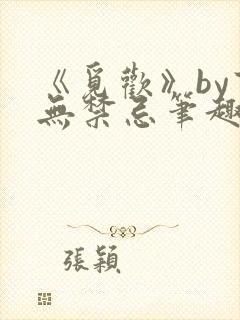 《覓歡》by
無禁忌筆趣
張穎